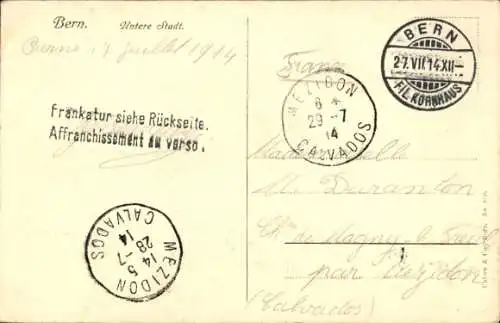 Bern. Untere Stadt.
Berne 27 Juillet 1914
BERN
27.VII.14.XII-
FIL. KORNHAUS
France
Frankatur siehe Rückseite.
Affranchissement au verso.
MEZIDON
6 *
29 -7
14
CALVADOS
Mademoiselle
M. Duranton
Ch de Magny
par Mézidon
(Calvados)
MEZIDON
14 5
28 -7
14
CALVADOS